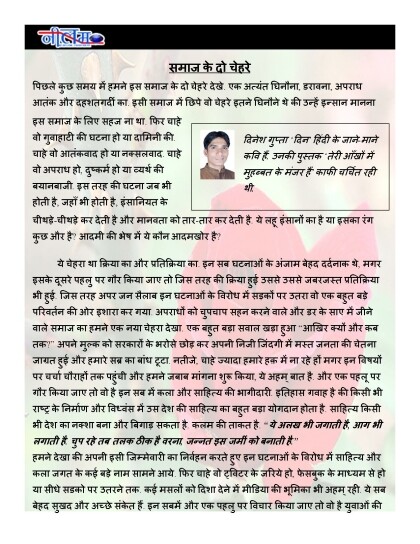 नीलम
समाज के दो चेहरे
पिछले कुछ समय में हमने इस समाज के दो चेहरे देखे. एक अत्यंत घिनौना, डरावना, अपराध
आतंक और दहशतगर्दी का. इसी समाज में छिपे वो चेहरे इतने घिनौने थे की उन्हें इन्सान मानना
इस समाज के लिए सहज ना था. फिर चाहे
वो गुवाहाटी की घटना हो या दामिनी की.
चाहे वो आतंकवाद हो या नक्सलवाद. चाहे
वो अपराध हो, दुष्कर्म हो या व्यर्थ की
बयानबाजी. इस तरह की घटना जब भी
होती है, जहाँ भी होती है, इंसानियत के
दिनेश गुप्ता 'दिन' हिंदी के जाने-माने
कवि हैं. उनकी पुस्तक 'तेरी आँखों में
मुहब्बत के मंजर हैं' काफी चर्चित रही
थी.
चीथड़े-चीथड़े कर देती है और मानवता को तार-तार कर देती है. ये लहू इंसानों का है या इसका रंग
कुछ और है? आदमी की भेष में ये कौन आदमखोर है?
ये चेहरा था क्रिया का और प्रतिक्रिया का. इन सब घटनाओं के अंजाम बेहद दर्दनाक थे, मगर
इसके दूसरे पहलु पर गौर किया जाए तो जिस तरह की क्रिया हुई उससे उससे जबरजस्त प्रतिक्रिया
भी हुई. जिस तरह अपर जन सैलाब इन घटनाओं के विरोध में सडकों पर उतरा वो एक बहुत बड़े
परिवर्तन की ओर इशारा कर गया. अपराधों को चुपचाप सहन करने वाले और डर के साए में जीने
वाले समाज का हमने एक नया चेहरा देखा. एक बहुत बड़ा सवाल खड़ा हुआ "आखिर क्यों और कब
तक?" अपने मुल्क को सरकारों के भरोसे छोड़ कर अपनी निजी जिंदगी में मस्त जनता की चेतना
जागत हुई और हमारे सब्र का बांध टूटा. नतीजे, चाहे ज्यादा हमारे हक में ना रहे हों मगर इन विषयों
पर चर्चा चौराहों तक पहुंची और हमने जबाब मांगना शुरू किया, ये अहम् बात है. और एक पहलू पर
गौर किया जाए तो वो है इन सब में कला और साहित्य की भागीदारी. इतिहास गवाह है की किसी भी
राष्ट्र के निर्माण और विध्वंस में उस देश की साहित्य का बहुत बड़ा योगदान होता है. साहित्य किसी
भी देश का नक्शा बना और बिगाड़ सकता है. कलम की ताकत है. "ये अलख भी जगाती है, आग भी
लगाती है; चुप रहे तब तलक ठीक है वरना, जन्नत इस जमीं को बनाती है."
हमने देखा की अपनी इसी जिम्मेवारी का निर्वहन करते हुए इन घटनाओं के विरोध में साहित्य और
कला जगत के कई बड़े नाम सामने आये. फिर चाहे वो ट्विटर के जरिये हो, फेसबुक के माध्यम से हो
या सीधे सडकों पर उतरने तक. कई मसलों को दिशा देने में मीडिया की भूमिका भी अहम् रही. ये सब
बेहद सुखद और अच्छे संकेत हैं. इन सबमें और एक पहलू पर विचार किया जाए तो वो है युवाओं की